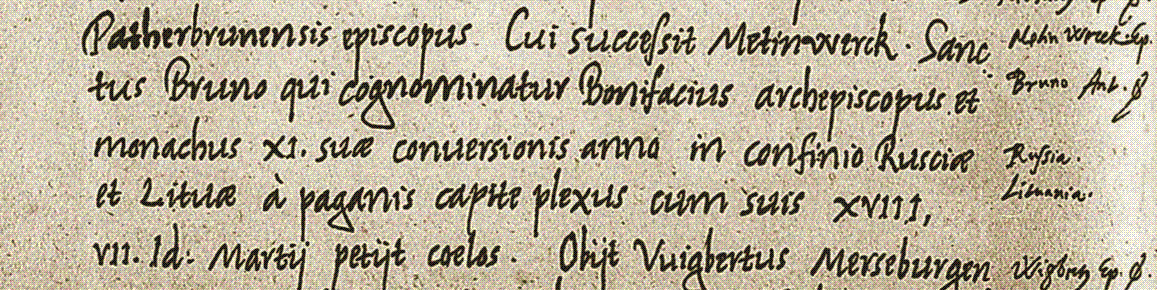 Patherbrunensis episcopus Cui successit Metinwerck. Sanc
tus Bruno qui cognominatur Bonifacius archepiscopus et
monachus XI. suæ conuersionis anno in confinio Rusciæ
et Lituæ à paganis capite plexus cum suis XVIII,
VII. Id. Martij petijt coelos. Obijt Vuigbertus Merseburgen
Bruno
Russia.
Lituania.
Ep.